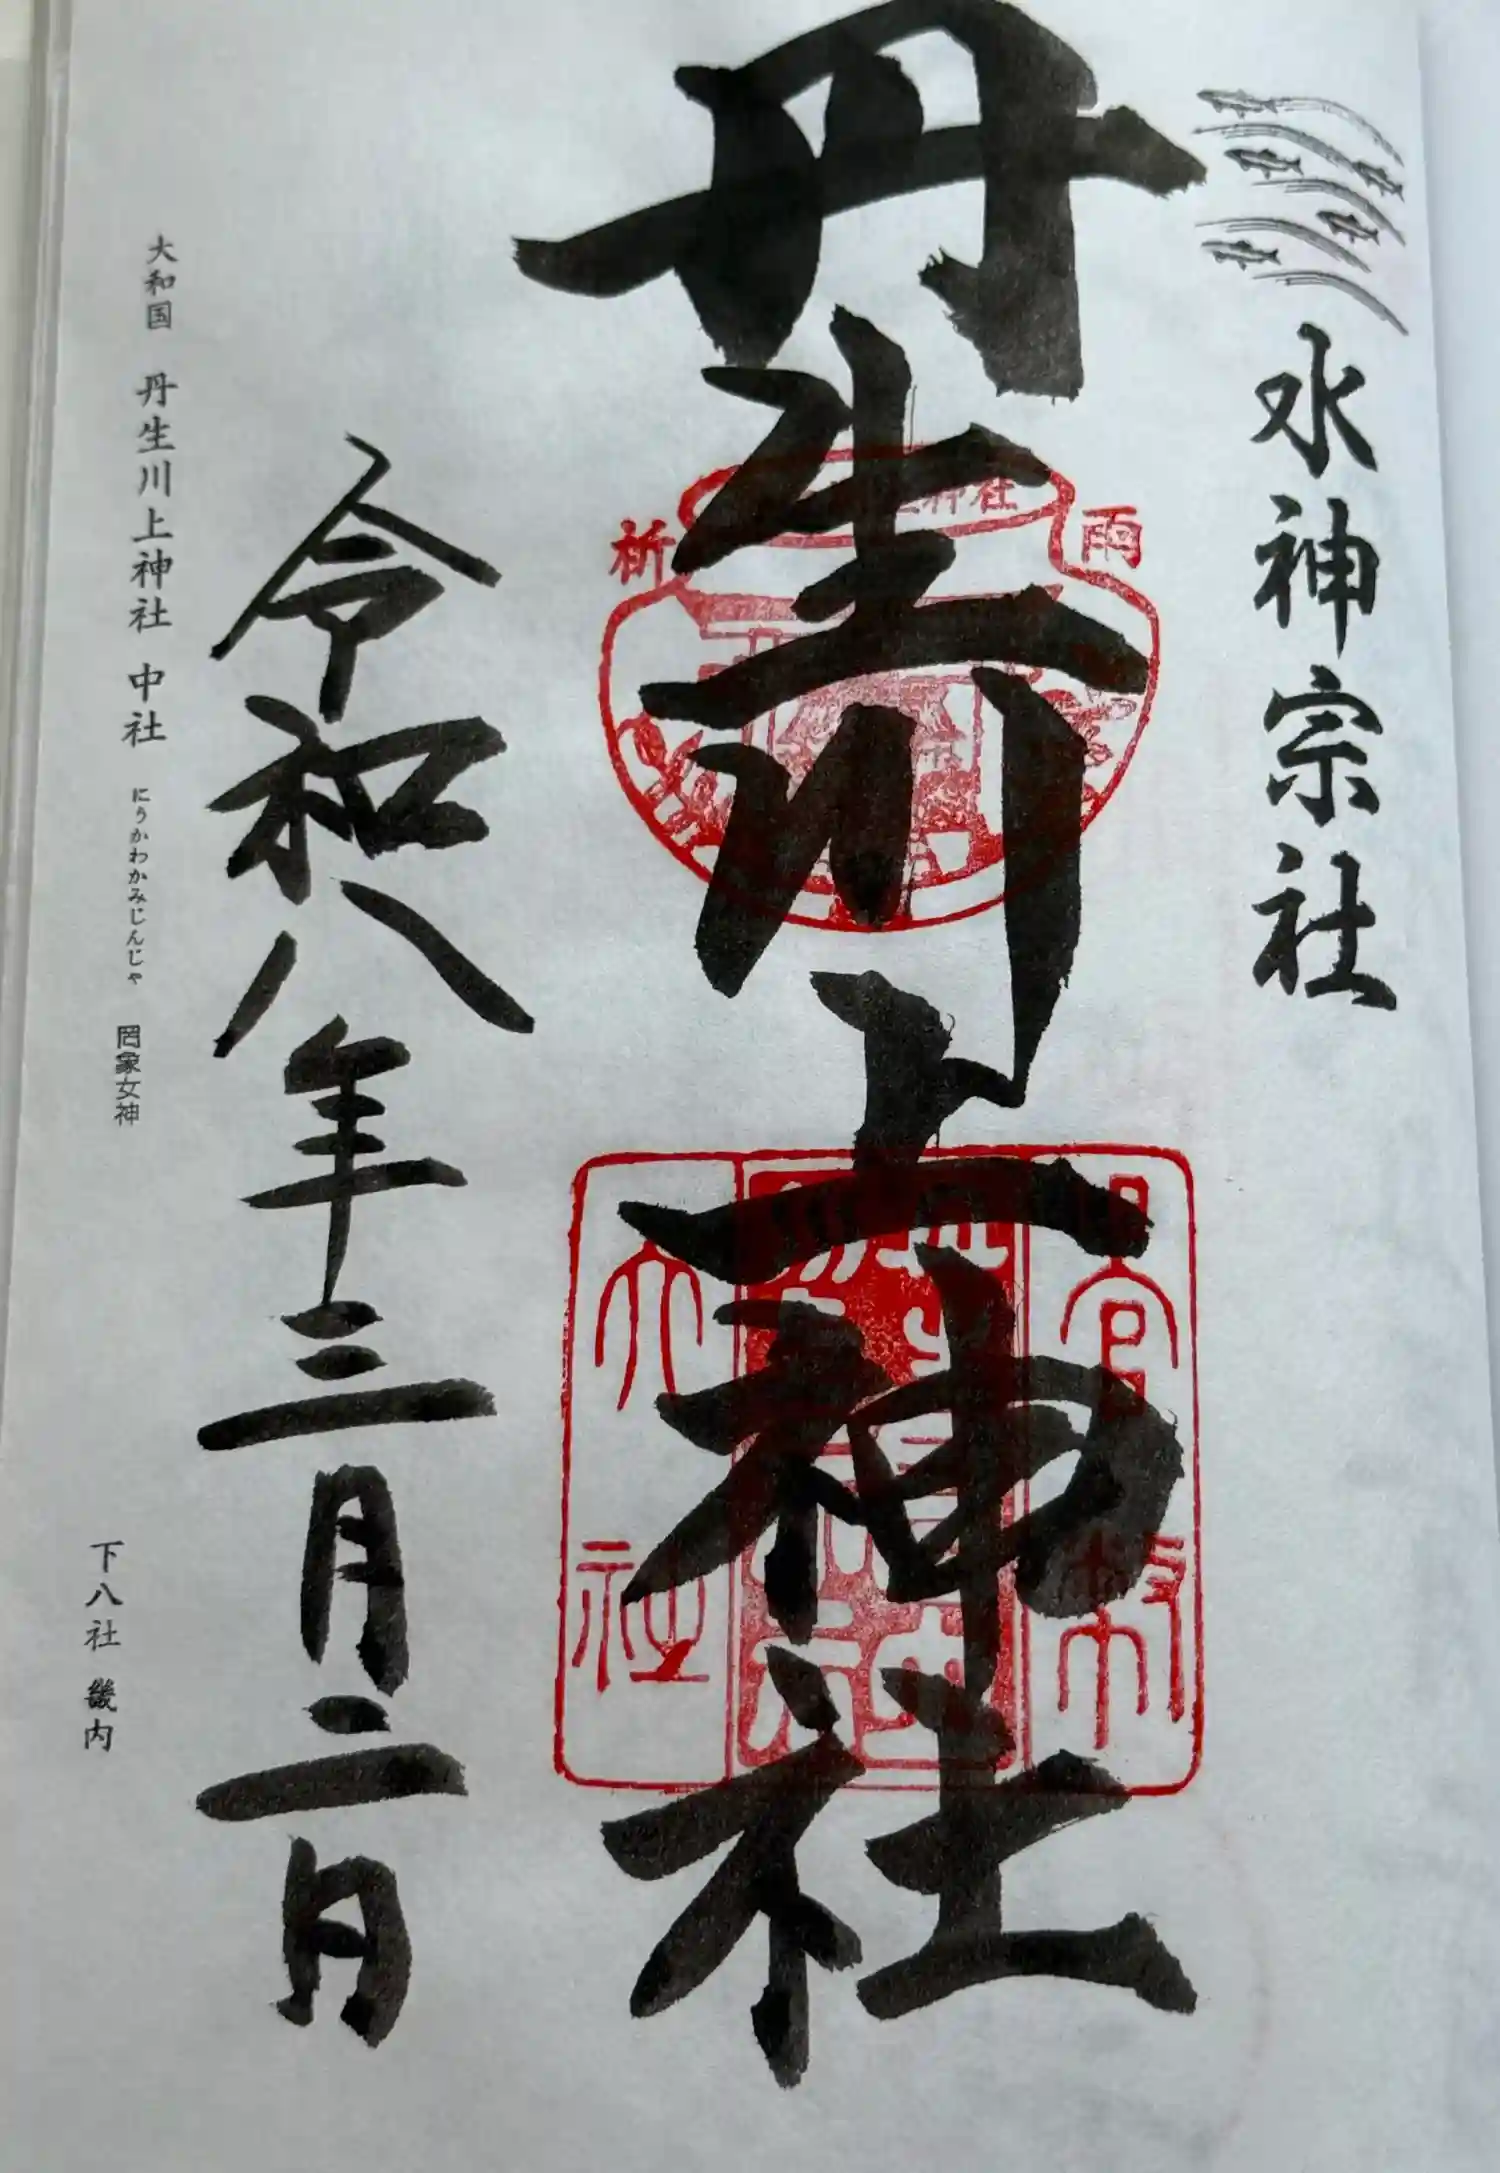 水神宗社
丹生川上神社
祈雨
神社
官幣
大社
令和八年三月二日
大和国 丹生川上神社 中社 にうかわかみじんじゃ 罔象女神
下八社 畿内